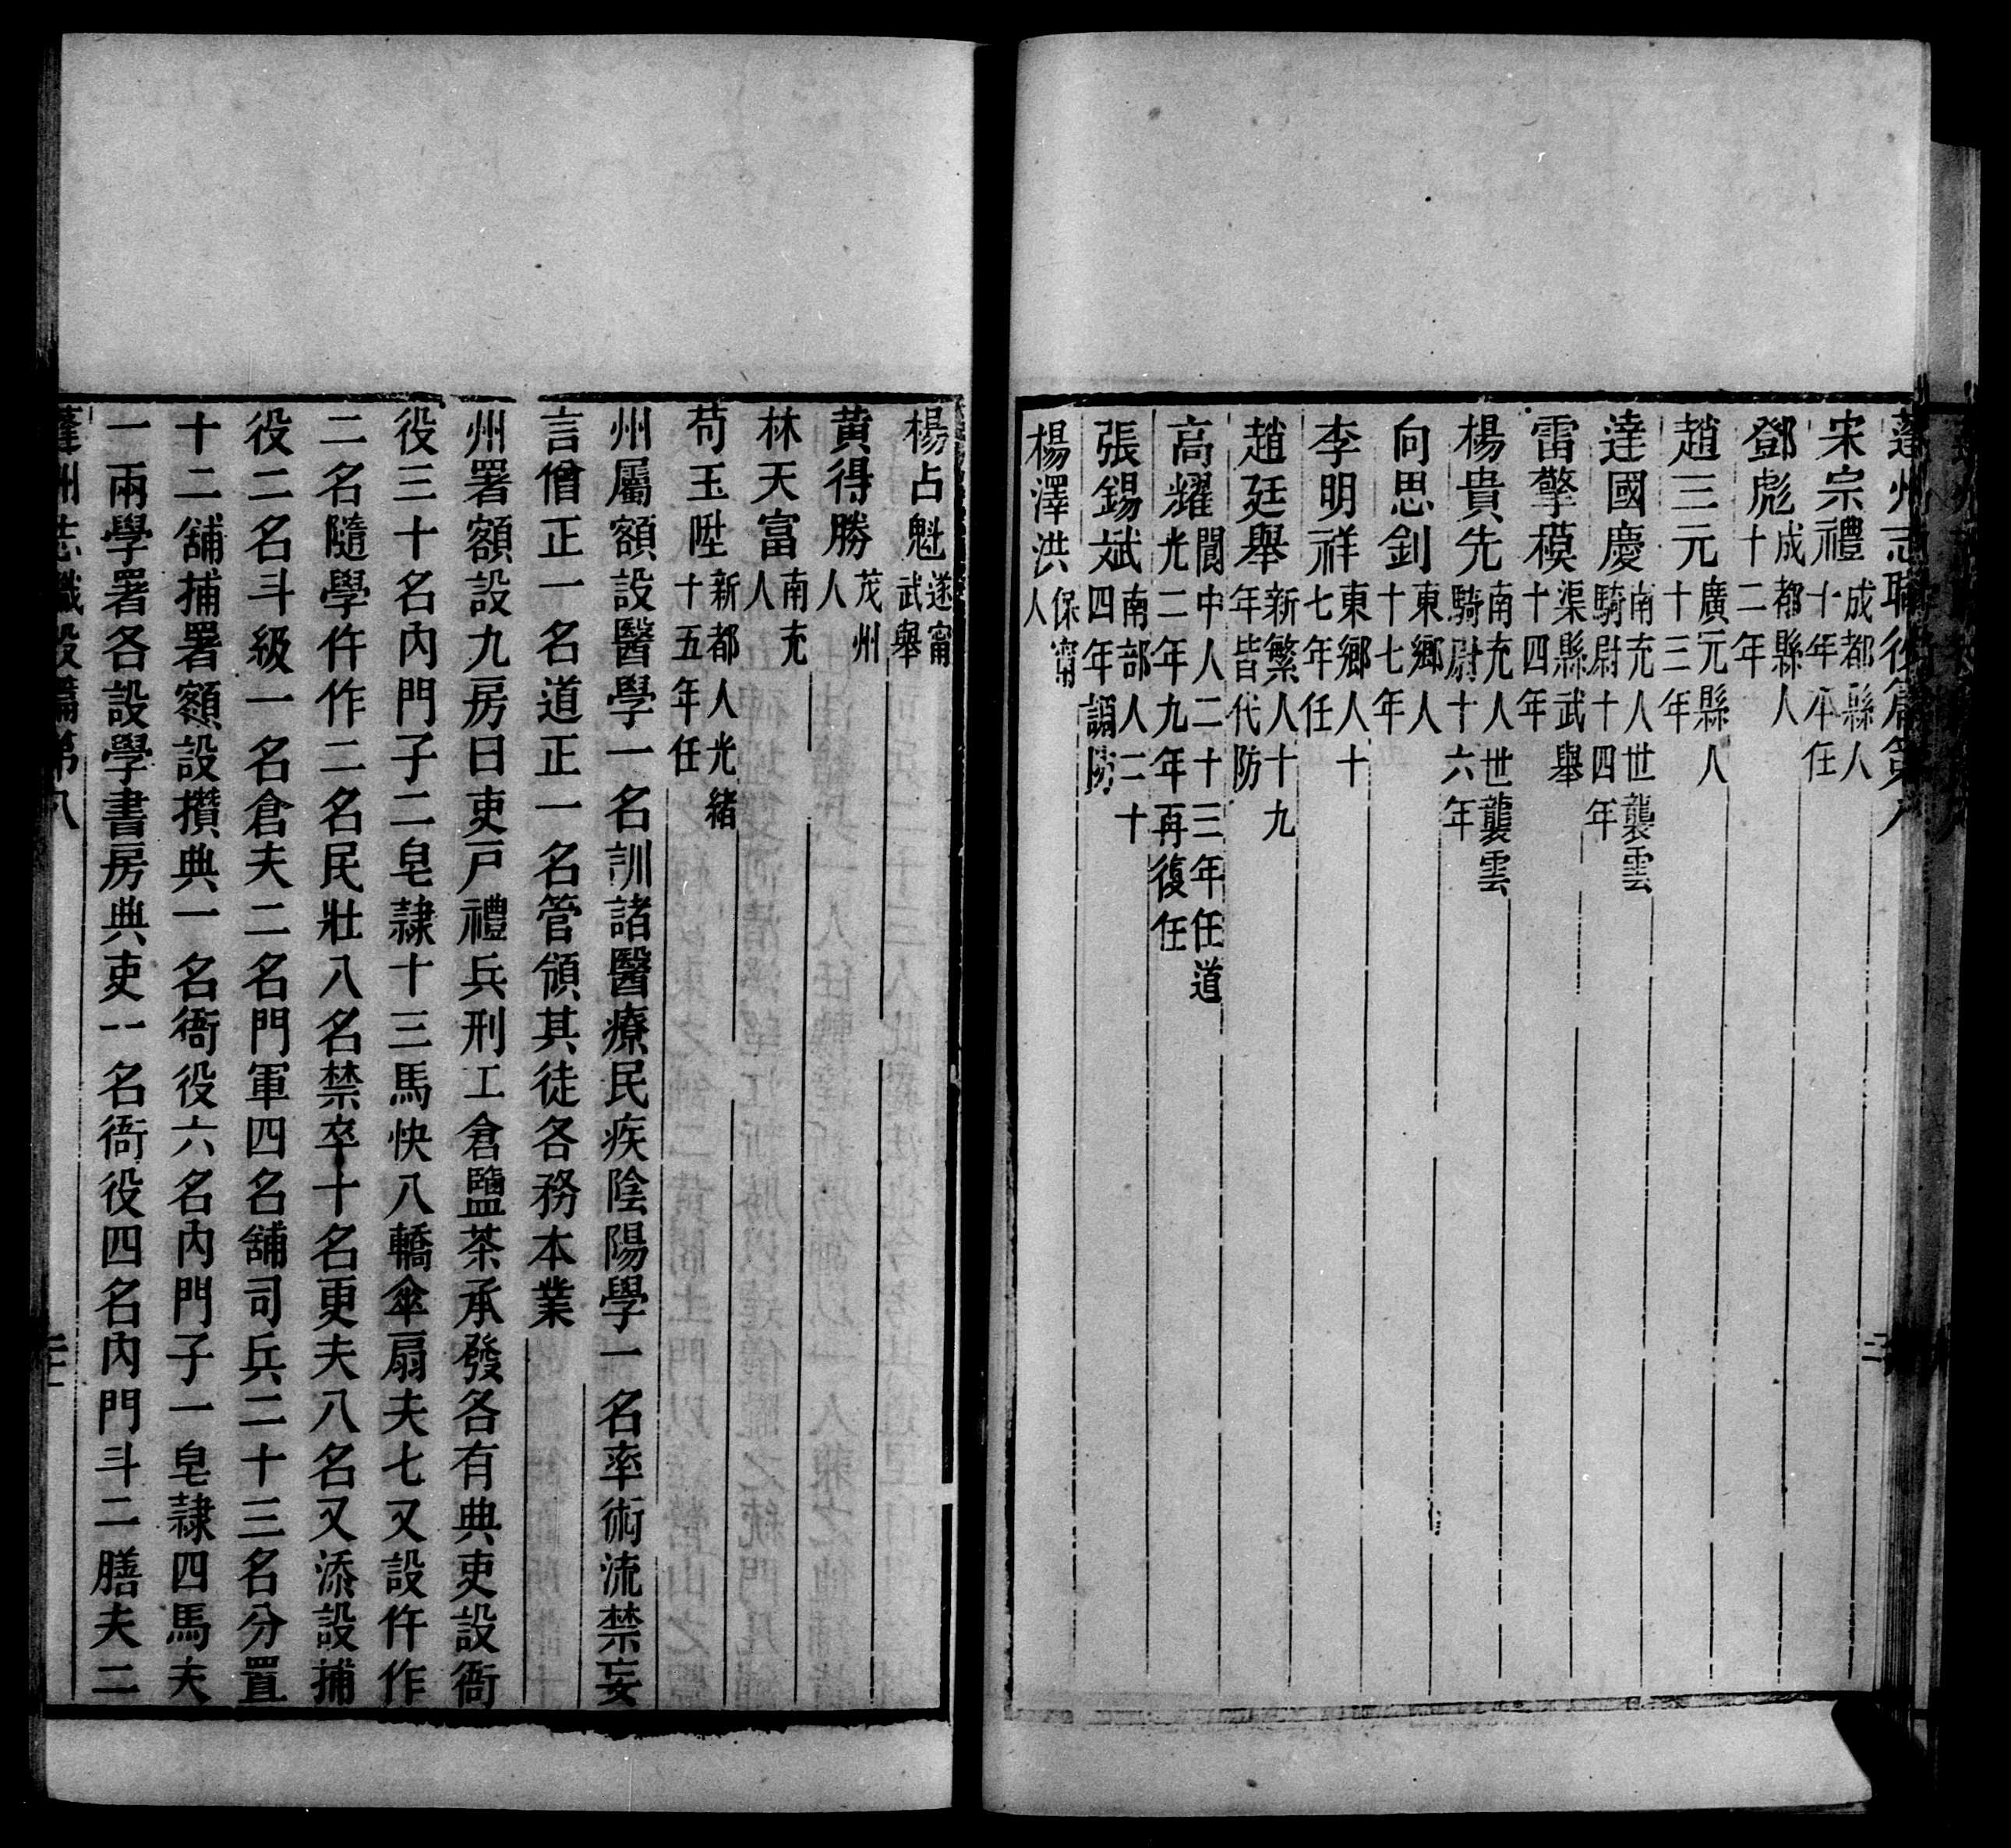 蓬州志職役篇第八
宋宗禮成都縣人十年本任
鄧彪成都縣人十二年
趙三元廣元縣人十三年
達國慶南充人世襲雲騎尉十四年
雷擎模渠縣武舉十四年
楊貴先南充人世襲雲騎尉十六年
向思釗東鄉人十七年
李明祥東鄉人十七年任
趙廷舉新繁人十九年皆代防
高燿閬中人二十三年任道光二年九年再復任
張錫斌南部人二十四年調防
楊澤洪保甯人
楊占魁遂甯武舉
黃得勝茂州人
林天富南充人
苟玉陞新都人光緒十五年任
州屬額設醫學一名訓諸醫療民疾陰陽學一名率術流禁妄
言僧正一名道正一名管領其徒各務本業
州署額設九房曰吏戸禮兵刑工倉鹽茶承發各有典吏設衙
役三十名內門子二皂隷十三馬快八轎傘扇夫七又設仵作
二名隨學仵作二名民壯八名禁卒十名更夫八名又添設捕
役二名斗級一名倉夫二名門軍四名舖司兵二十三名分置
十二舖捕署額設攢典一名衙役六名內門子一皂隷四馬夫
一兩學署各設學書房典吏一名衙役四名內門斗二膳夫二
蓬州志職役篇第八